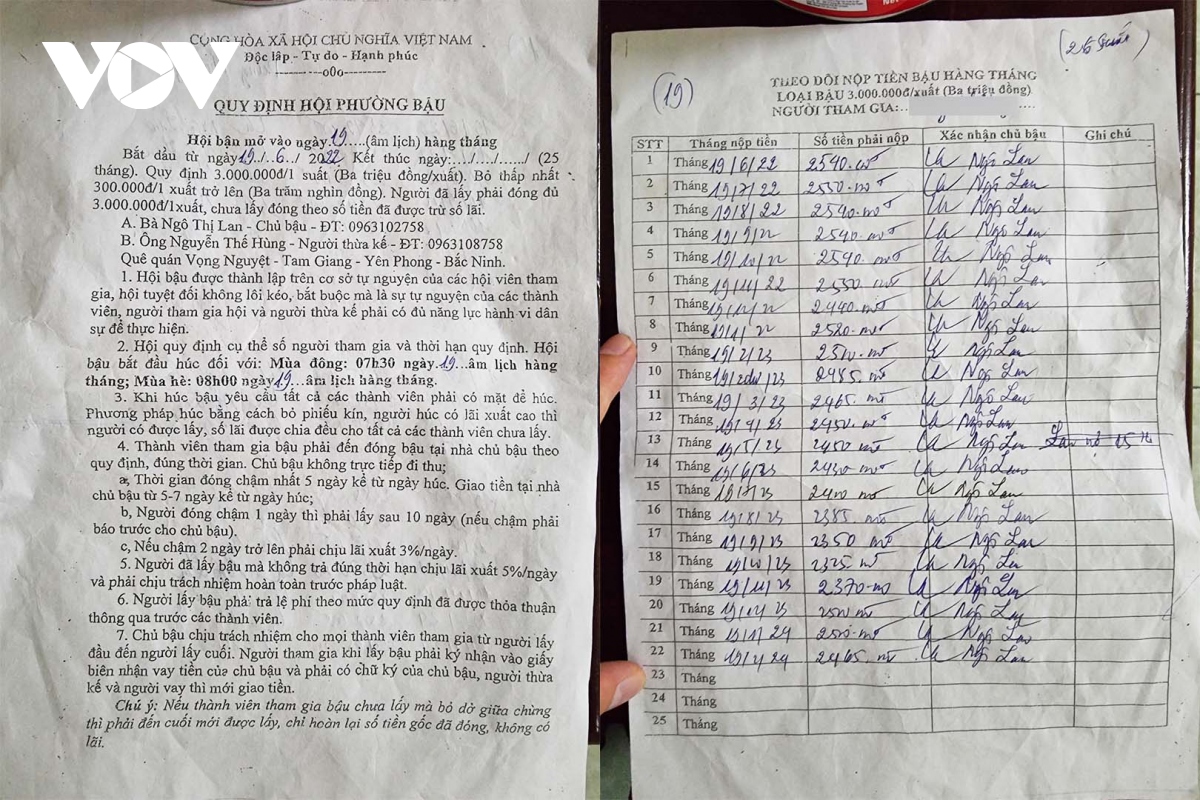 VOV
CỘNG HÒA XÃ HỘI CHỦ NGHĨA VIỆT NAM
Độc lập - Tự do - Hạnh phúc
---------o0o---------
QUY ĐỊNH HỘI PHƯỜNG BẬU
Hội bận mở vào ngày.19.....(âm lịch) hàng tháng
Bắt đầu từ ngày19../..6../ 2022 Kết thúc ngày:..../..../....../ (25
tháng). Quy định 3.000.000đ/1 suất (Ba triệu đồng/xuất). Bỏ thấp nhất
300.000đ/1 xuất trở lên (Ba trăm nghìn đồng). Người đã lấy phải đóng đủ
3.000.000đ/1xuất, chưa lấy đóng theo số tiền đã được trừ số lãi.
A. Bà Ngô Thị Lan - Chủ bậu - ĐT: 0963102758
B. Ông Nguyễn Thế Hùng - Người thừa kế - ĐT: 0963108758
Quê quán Vọng Nguyệt - Tam Giang - Yên Phong - Bắc Ninh.
1. Hội bậu được thành lập trên cơ sở tự nguyện của các hội viên tham
gia, hội tuyệt đối không lôi kéo, bắt buộc mà là sự tự nguyện của các thành
viên, người tham gia hội và người thừa kế phải có đủ năng lực hành vi dân
sự để thực hiện.
2. Hội quy định cụ thể số người tham gia và thời hạn quy định. Hội
bậu bắt đầu húc đối với: Mùa đông: 07h30 ngày.19...âm lịch hàng
tháng; Mùa hè: 08h00 ngày19....âm lịch hàng tháng.
3. Khi húc bậu yêu cầu tất cả các thành viên phải có mặt để húc.
Phương pháp húc bằng cách bỏ phiếu kín, người húc có lãi xuất cao thì
người có được lấy, số lãi được chia đều cho tất cả các thành viên chưa lấy.
4. Thành viên tham gia bậu phải đến đóng bậu tại nhà chủ bậu theo
quy định, đúng thời gian. Chủ bậu không trực tiếp đi thu;
a, Thời gian đóng chậm nhất 5 ngày kể từ ngày húc. Giao tiền tại nhà
chủ bậu từ 5-7 ngày kể từ ngày húc;
b, Người đóng chậm 1 ngày thì phải lấy sau 10 ngày (nếu chậm phải
báo trước cho chủ bậu).
c, Nếu chậm 2 ngày trở lên phải chịu lãi xuất 3%/ngày.
5. Người đã lấy bậu mà không trả đúng thời hạn chịu lãi xuất 5%/ngày
và phải chịu trách nhiệm hoàn toàn trước pháp luật.
6. Người lấy bậu phải trả lệ phí theo mức quy định đã được thỏa thuận
thông qua trước các thành viên.
7. Chủ bậu chịu trách nhiệm cho mọi thành viên tham gia từ người lấy
đầu đến người lấy cuối. Người tham gia khi lấy bậu phải ký nhận vào giấy
biên nhận vay tiền của chủ bậu và phải có chữ ký của chủ bậu, người thừa
kế và người vay thì mới giao tiền.
Chú ý: Nếu thành viên tham gia bậu chưa lấy mà bỏ dở giữa chừng
thì phải đến cuối mới được lấy, chỉ hoàn lại số tiền gốc đã đóng, không có
lãi.
(19)
THEO DÕI NỘP TIỀN BẬU HÀNG THÁNG
LOẠI BẬU 3.000.000đ/xuất (Ba triệu đồng)
NGƯỜI THAM GIA:..
STT Tháng nộp tiền Số tiền phải nộp Xác nhận chủ bậu Ghi chú
1 Tháng 19/6/22 2540 Ngô Lan
2 Tháng 19/7/22 2550 Ngô Lan
3 Tháng 19/8/22 2540 Ngô Lan
4 Tháng 19/9/22 2540 Ngô Lan
5 Tháng 19/10/22 2540 Ngô Lan
6 Tháng 19/11/22 2550 Ngô Lan
7 Tháng 19/12/22 2440 Ngô Lan
8 Tháng 19/1/22 2520 Ngô Lan
9 Tháng 19/2/23 Ngô Lan
10 Tháng 2485 Ngô Lan
11 Tháng 19/3/23 2465 Ngô Lan
12 Tháng 19/4/23 2450 Ngô Lan
13 Tháng 19/5/23 2450 Ngô Lan
14 Tháng 19/6/23 2430 Ngô Lan
15 Tháng 19/7/23 2400 Ngô Lan
16 Tháng 19/8/23 2385 Ngô Lan
17 Tháng 19/9/23 2350 Ngô Lan
18 Tháng 19/10/23 2325 Ngô Lan
19 Tháng 19/11/23 2370 Ngô Lan
20 Tháng 19/12/23 Ngô Lan
21 Tháng 19/1/24 Ngô Lan
22 Tháng 19/2/24 2465 Ngô Lan
23 Tháng
24 Tháng
25 Tháng